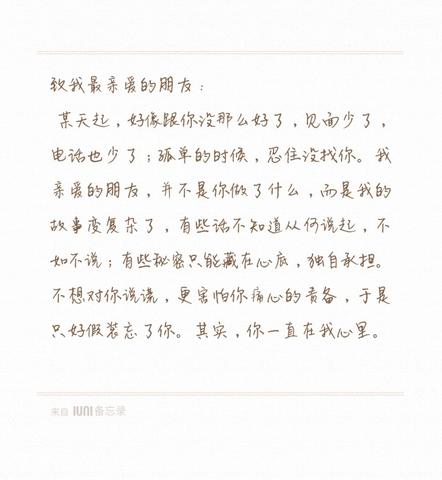 致我最亲爱的朋友：
某天起，好像跟你没那么好了，见面少了，
电话也少了；孤单的时候，忍住没找你。我
亲爱的朋友，并不是你做了什么，而是我的
故事变复杂了，有些话不知道从何说起，不
如不说；有些秘密只能藏在心底，独自承担。
不想对你说谎，更害怕你痛心的责备，于是
只好假装忘了你。其实，你一直在我心里。
来自 IUNI 备忘录